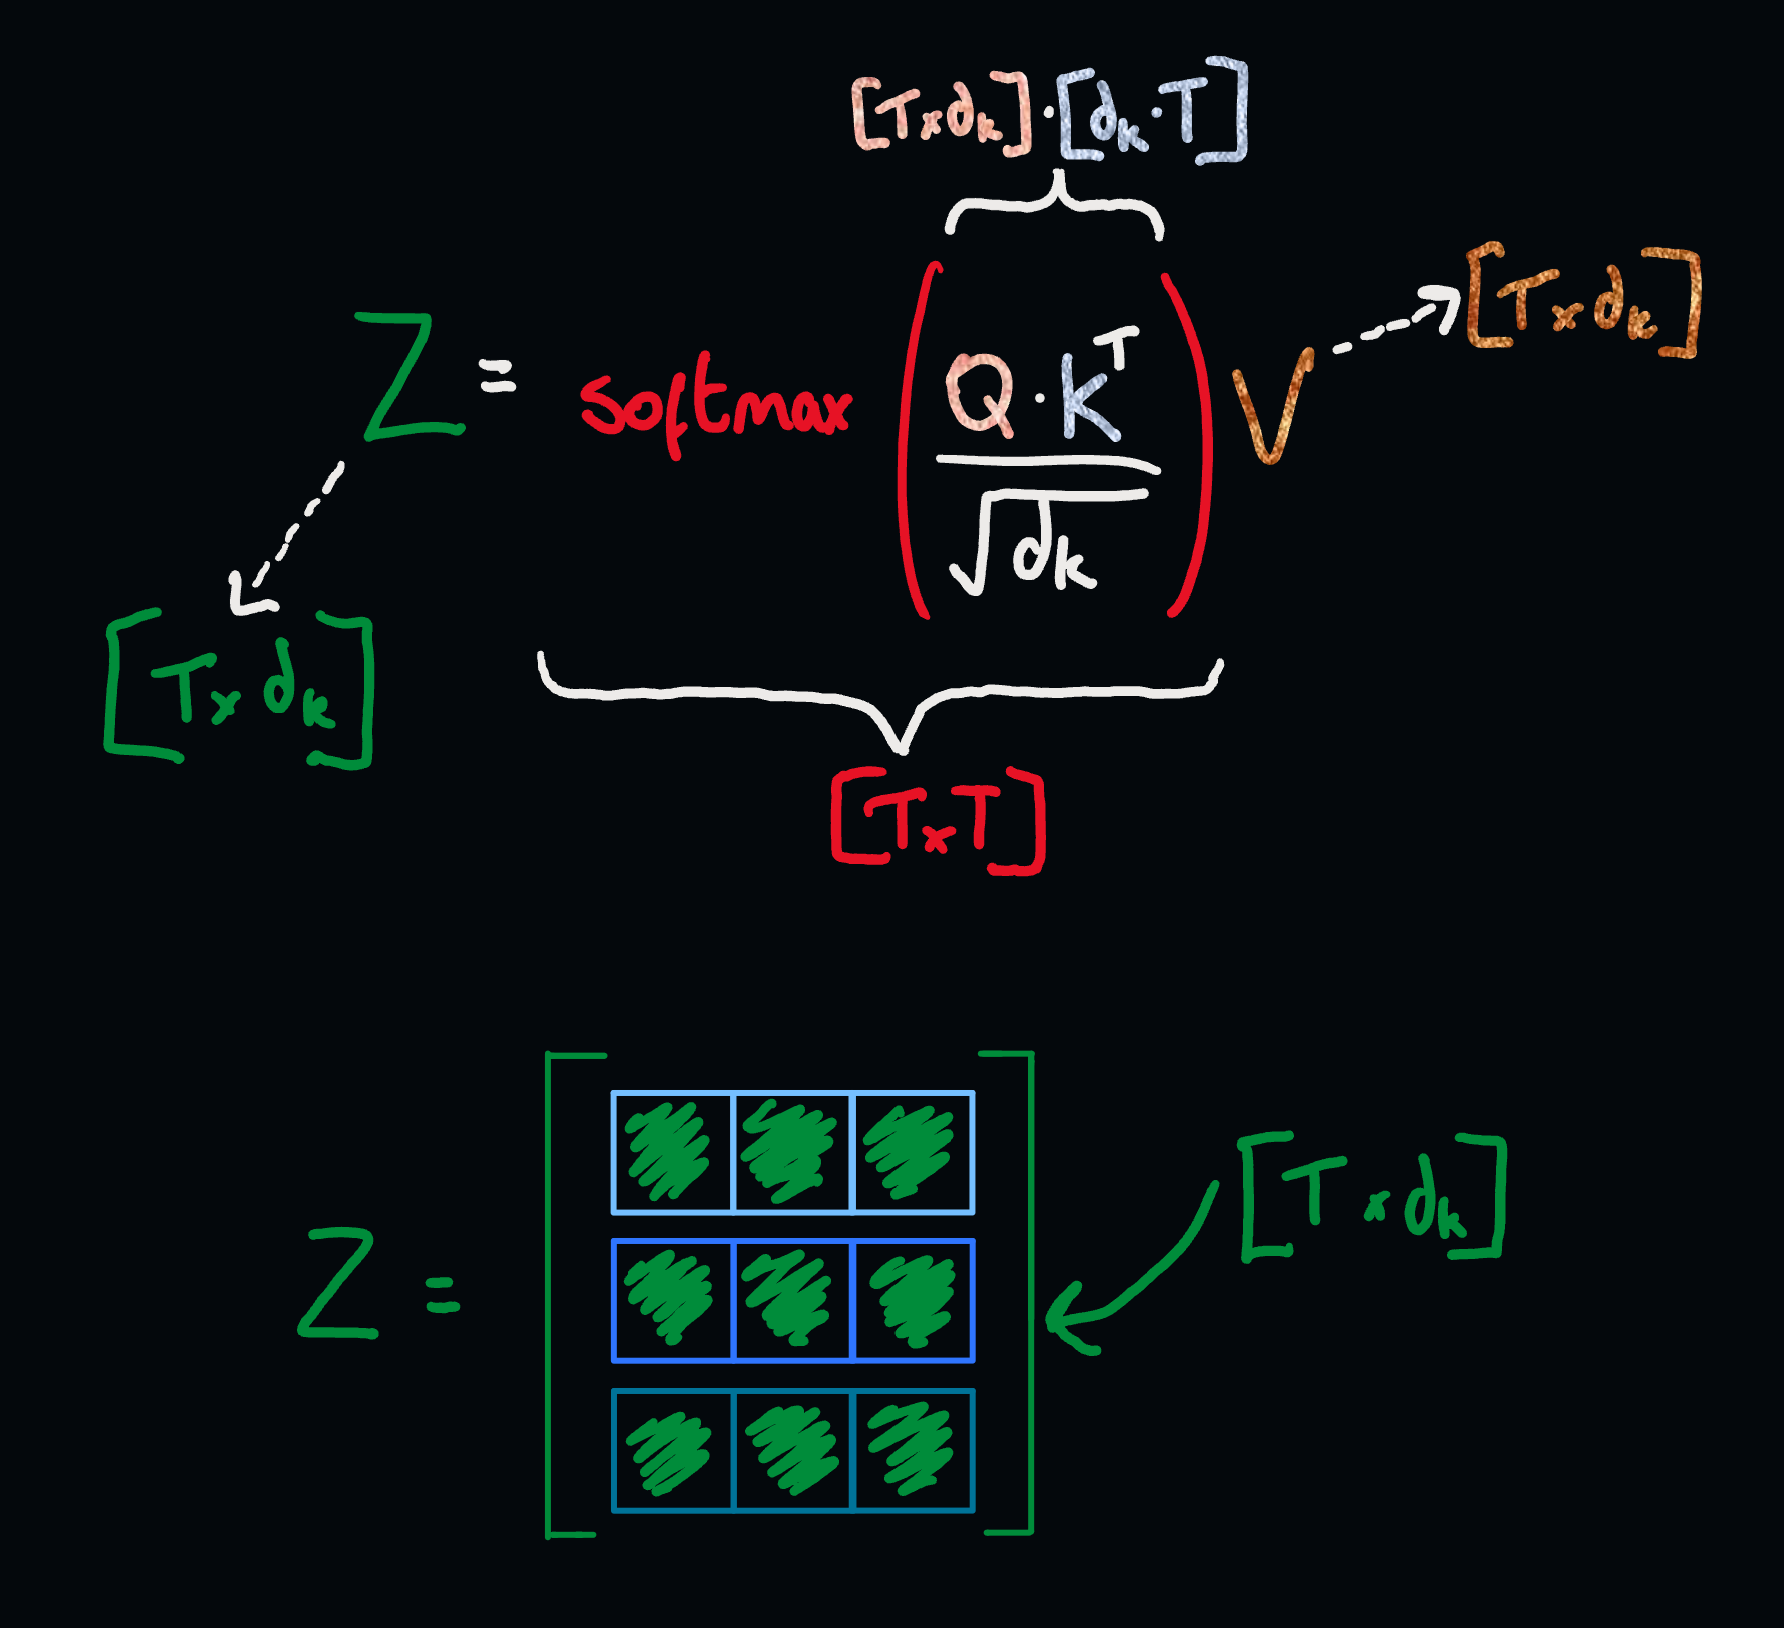 [T x dk] · [dk · T]
Z = softmax ( Q · K^T / √dk ) V [T x dk]
[T x dk]
[T x T]
Z = [T x dk]